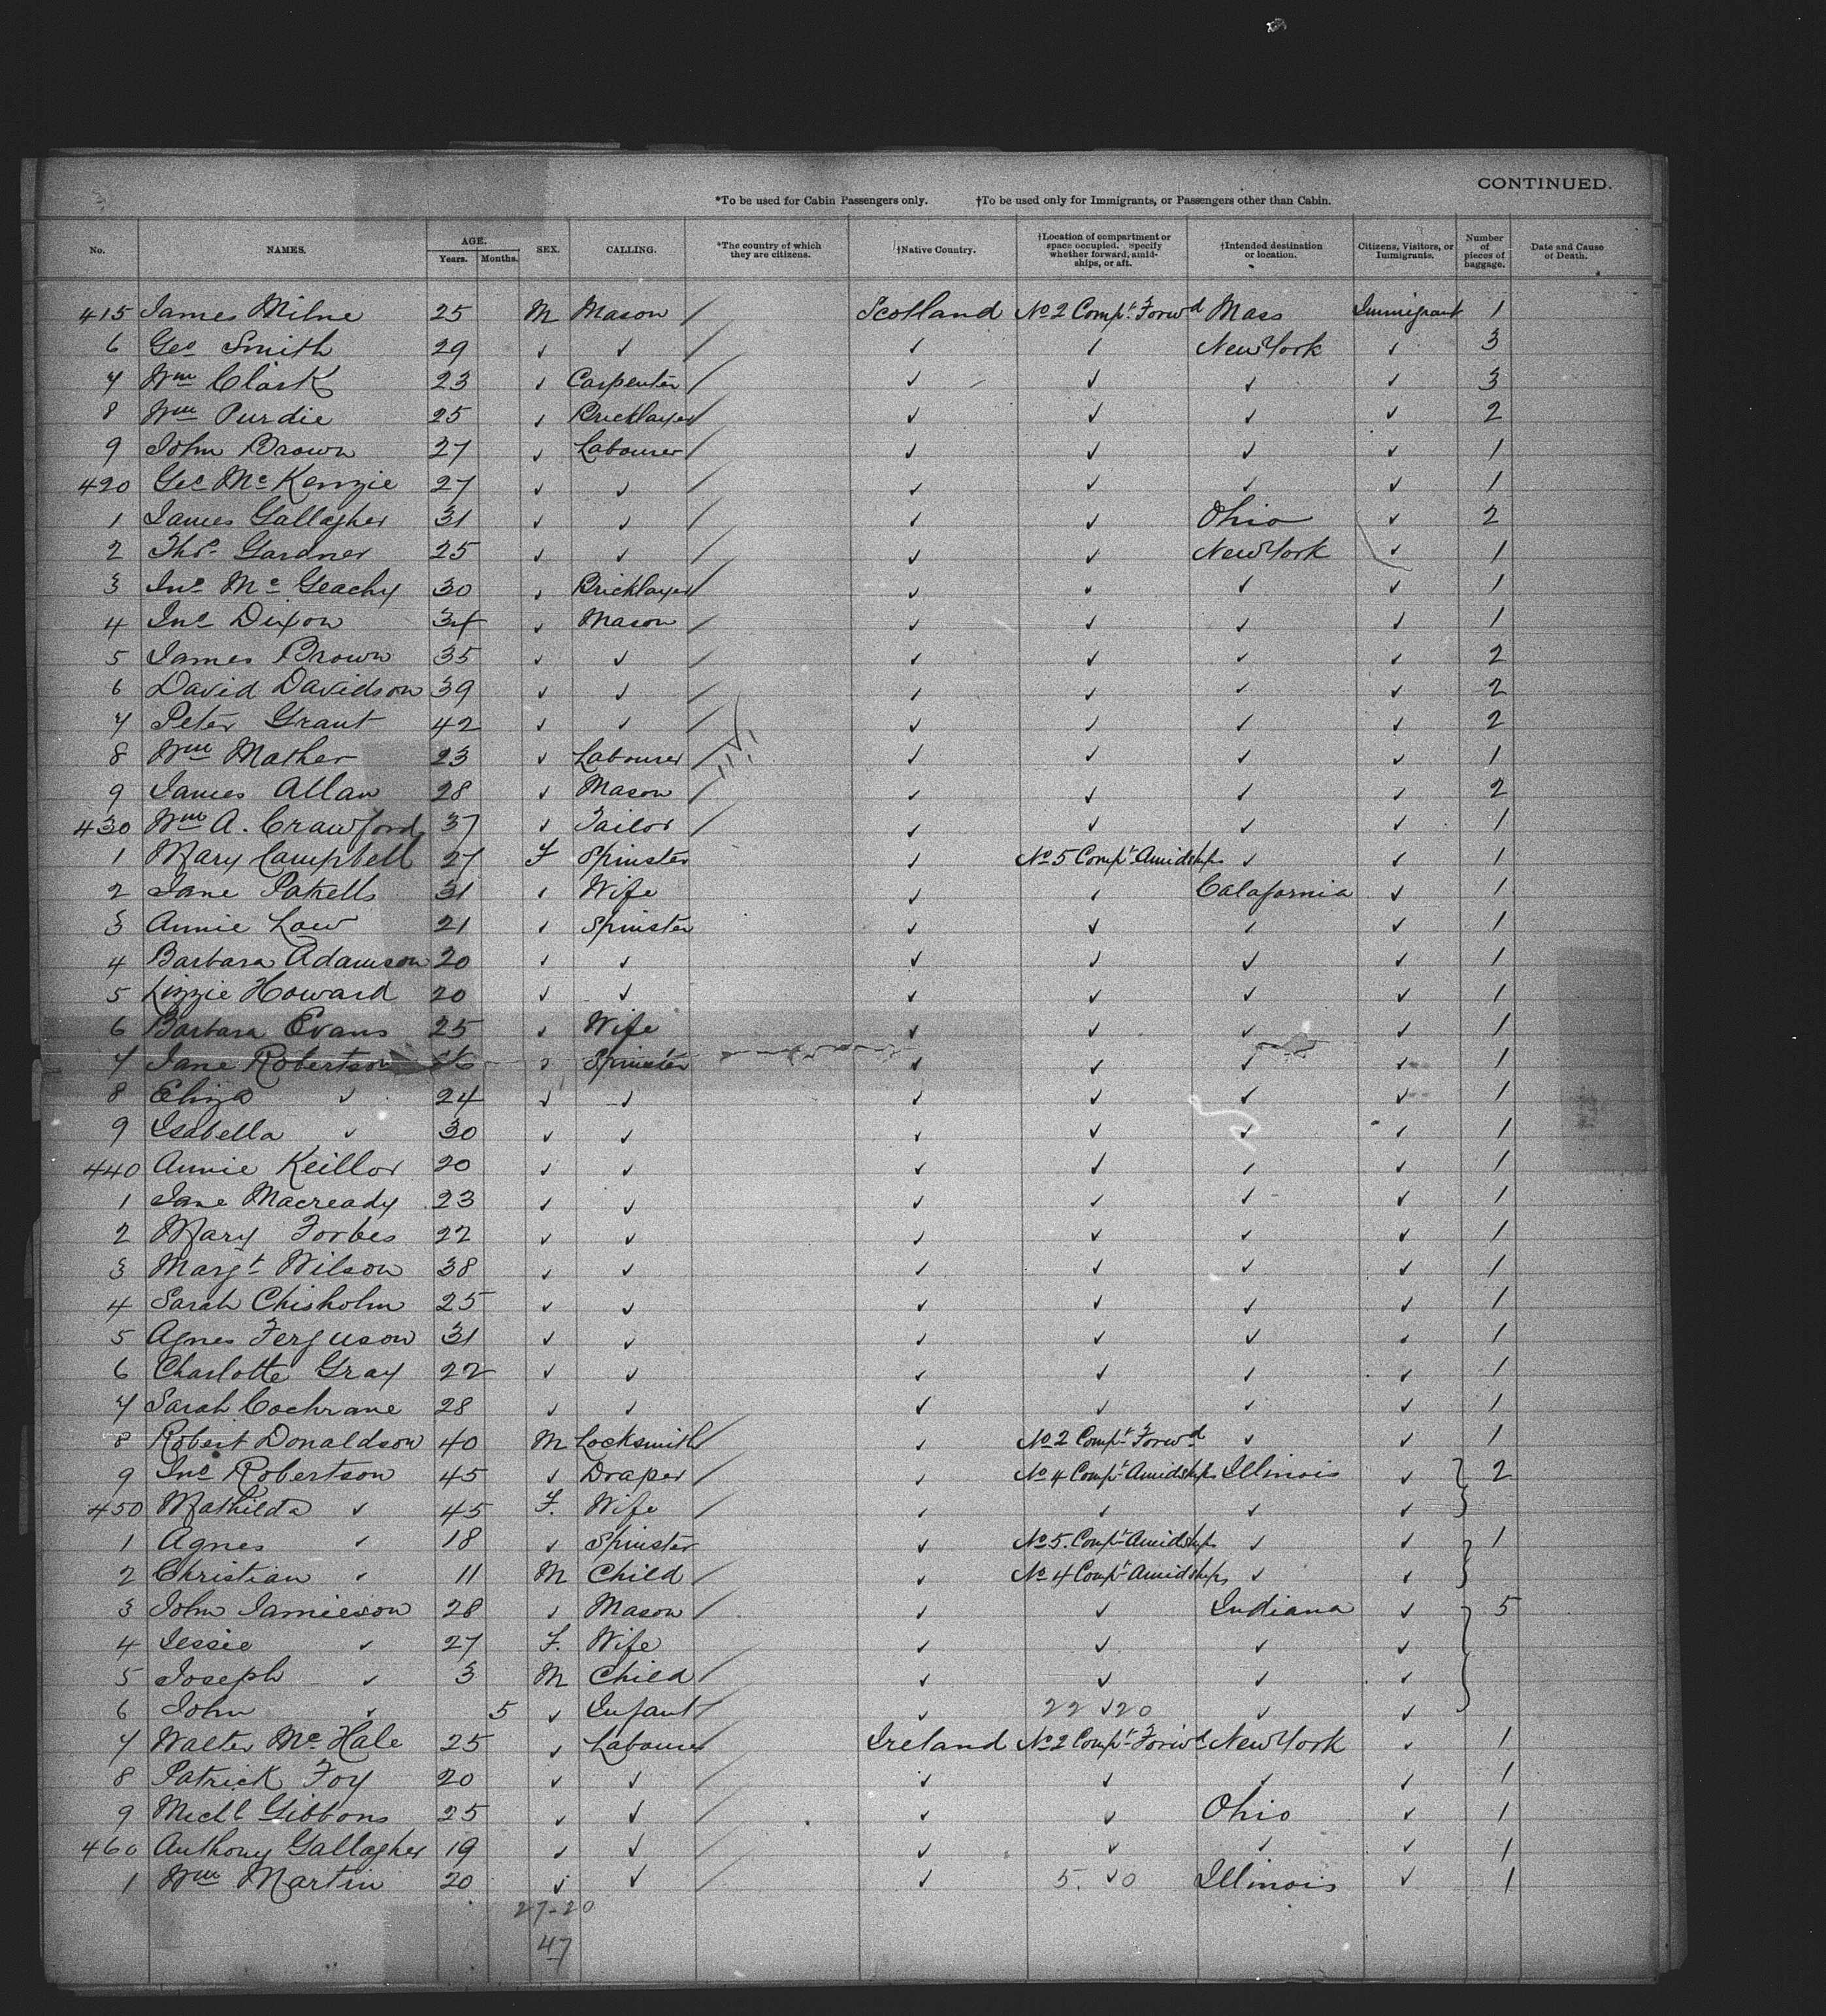 CONTINUED.
*To be used for Cabin Passengers only. †To be used only for Immigrants, or Passengers other than Cabin.
No. NAMES. AGE. Years. Months. SEX. CALLING. *The country of which they are citizens. †Native Country. †Location of compartment or space occupied. Specify whether forward, amidships, or aft. †Intended destination or location. Citizens, Visitors, or Immigrants. Number of pieces of baggage. Date and Cause of Death.
415 James Milne 25 M Mason / Scotland No 2 Compt. Forwd Mass Immigrant 1
6 Geo Smith 29 ✓ ✓ / ✓ ✓ New York ✓ 3
7 Wm Clark 23 ✓ Carpenter / ✓ ✓ ✓ ✓ 3
8 Wm Purdie 25 ✓ Bricklayer / ✓ ✓ ✓ ✓ 2
9 John Brown 27 ✓ Labourer / ✓ ✓ ✓ ✓ 1
420 Geo McKenzie 27 ✓ ✓ / ✓ ✓ ✓ ✓ 1
1 James Gallagher 31 ✓ ✓ / ✓ ✓ Ohio ✓ 2
2 Thos. Gardner 25 ✓ ✓ / ✓ ✓ New York ✓ 1
3 Jno McGeachy 30 ✓ Bricklayer / ✓ ✓ ✓ ✓ 1
4 Jno Dixon 34 ✓ Mason / ✓ ✓ ✓ ✓ 1
5 James Brown 35 ✓ ✓ / ✓ ✓ ✓ ✓ 2
6 David Davidson 39 ✓ ✓ / ✓ ✓ ✓ ✓ 2
7 Peter Grant 42 ✓ ✓ / ✓ ✓ ✓ ✓ 2
8 Wm Mather 23 ✓ Labourer / ✓ ✓ ✓ ✓ 1
9 James Allan 28 ✓ Mason / ✓ ✓ ✓ ✓ 2
430 Wm A. Crawford 37 ✓ Tailor / ✓ ✓ ✓ ✓ 1
1 Mary Campbell 27 F Spinster ✓ No 5 Compt. Amidships ✓ ✓ 1
2 Jane Patrells 31 ✓ Wife ✓ ✓ Calafornia ✓ 1
3 Annie Law 21 ✓ Spinster ✓ ✓ ✓ ✓ 1
4 Barbara Adamson 20 ✓ ✓ ✓ ✓ ✓ ✓ 1
5 Lizzie Howard 20 ✓ ✓ ✓ ✓ ✓ ✓ 1
6 Barbara Evans 25 ✓ Wife ✓ ✓ ✓ ✓ 1
7 Jane Robertson ✓ Spinster ✓ ✓ ✓ ✓ 1
8 Eliza ✓ 24 ✓ ✓ ✓ ✓ ✓ ✓ 1
9 Isabella ✓ 30 ✓ ✓ ✓ ✓ ✓ ✓ 1
440 Annie Keillor 20 ✓ ✓ ✓ ✓ ✓ ✓ 1
1 Jane Macready 23 ✓ ✓ ✓ ✓ ✓ ✓ 1
2 Mary Forbes 22 ✓ ✓ ✓ ✓ ✓ ✓ 1
3 Margt Wilson 38 ✓ ✓ ✓ ✓ ✓ ✓ 1
4 Sarah Chisholm 25 ✓ ✓ ✓ ✓ ✓ ✓ 1
5 Agnes Ferguson 31 ✓ ✓ ✓ ✓ ✓ ✓ 1
6 Charlotte Gray 22 ✓ ✓ ✓ ✓ ✓ ✓ 1
7 Sarah Cochrane 28 ✓ ✓ ✓ ✓ ✓ ✓ 1
8 Robert Donaldson 40 M Locksmith / ✓ No 2 Compt. Forwd ✓ ✓ 1
9 Jno Robertson 45 ✓ Draper / ✓ No 4 Compt. Amidships Illinois ✓ 2
450 Mathilda ✓ 45 F. Wife / ✓ ✓ ✓ ✓
1 Agnes ✓ 18 ✓ Spinster ✓ No 5. Compt. Amidships ✓ ✓ 1
2 Christian ✓ 11 M Child / ✓ No 4 Compt. Amidships ✓ ✓
3 John Jamieson 28 ✓ Mason / ✓ ✓ Indiana ✓ 5
4 Jessie ✓ 27 F. Wife ✓ ✓ ✓ ✓
5 Joseph ✓ 3 M Child / ✓ ✓ ✓ ✓
6 John ✓ 5 ✓ Infant / ✓ 22 ✓ 20 ✓ ✓
7 Walter McHale 25 ✓ Labourer Ireland No 2 Compt. Forwd New York ✓ 1
8 Patrick Foy 20 ✓ ✓ / ✓ ✓ ✓ ✓ 1
9 Michl Gibbons 25 ✓ ✓ / ✓ ✓ Ohio ✓ 1
460 Anthony Gallagher 19 ✓ ✓ / ✓ ✓ ✓ ✓ 1
1 Wm Martin 20 ✓ ✓ / ✓ 5. ✓ 0 Illinois ✓ 1
27-20
47